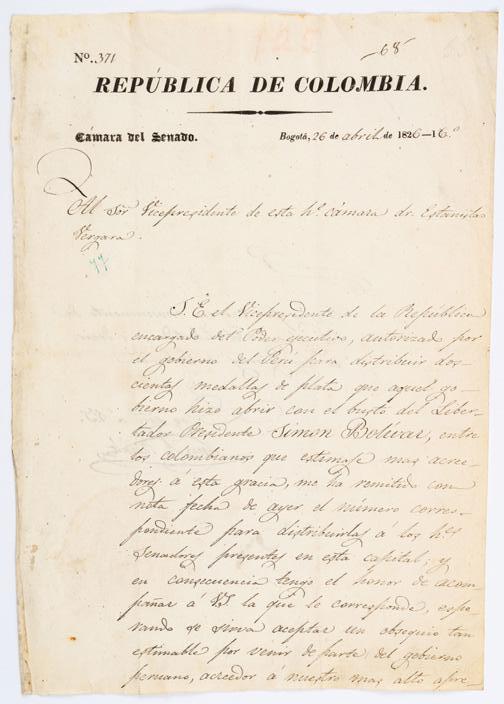 Nº. 371
68
REPÚBLICA DE COLOMBIA.
Cámara del Senado.
Bogotá, 26 de abril de 1826–16.º
Al Sor Vicepresidente de esta hª. cámara dr. Estanislao
Vergara.
77
S. E. el Vicepresidente de la República
encargado del Poder ejecutivo, autorizado por
el gobierno del Perú para distribuir dos-
cientas medallas de plata que aquel go-
bierno hizo abrir con el busto del Liber-
tador Presidente Simon Bolívar, entre
los colombianos que estimase mas acree-
dores á esta gracia, me ha remitido con
nota fecha de ayer el número corres-
pondiente para distribuirlas á los hes.
senadores presentes en esta capital; y
en consecuencia tengo el honor de acom-
pañar á VS. la que le corresponde, espe-
rando se sirva aceptar un obsequio tan
estimable por venir de parte del gobierno
peruano, acreedor á nuestro mas alto apre-